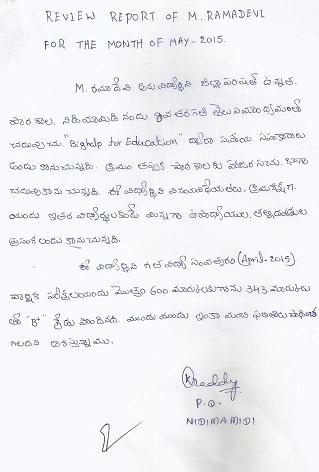 REVIEW REPORT OF M. RAMADEVI
FOR THE MONTH OF MAY - 2015.
M. రమాదేవి అను విద్యార్థిని జిల్లా పరిషత్ ఉన్నత
పాఠశాల, నిడిమామిడి నందు తరగతి తెలుగు మాధ్యమంలో
చదువుచు. "Bighelp for Education" ద్వారా సహాయ సహకారాలు
అందుకొనుచున్నది. క్రమం తప్పక పాఠశాలకు హాజరగుచు, బాగా
చదువుకొనుచున్నది. ఈ విద్యార్థిని వినయవిధేయతలు, క్రమశిక్షణ
యందు ఇతర విద్యార్థులకంటే మిన్నగా ఉపాధ్యాయుల, తల్లిదండ్రుల
ప్రశంసలందుకొనుచున్నది.
ఈ విద్యార్థిని గత విద్యా సంవత్సరం (April-2015)
వార్షిక పరీక్షలయందు మొత్తం 600 మార్కులకుగాను 343 మార్కులు
తో "B+" గ్రేడు పొందినది. ముందు ముందు ఇంకా మంచి ఫలితాలు సాధించ
గలదని ఆశిస్తున్నాము.
KReddy
P.D.
NIDIMAMIDI